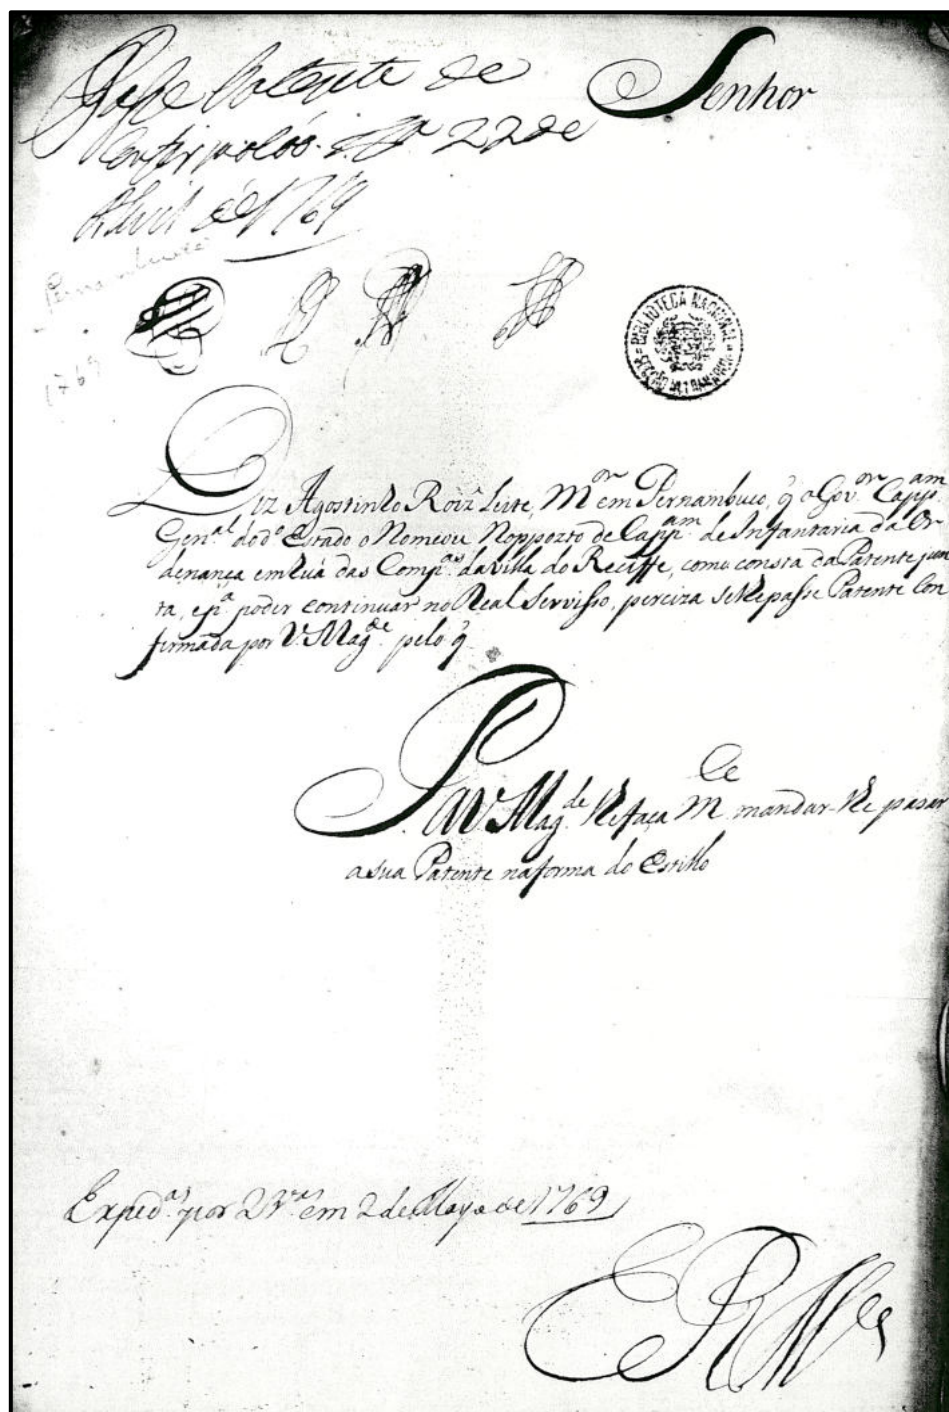 Passe Patente de
Confirmação. Lxª 22 de
Abril de 1769
Senhor
Pernambuco
1769
BIBLIOTECA NACIONAL
SECÇÃO ULTRAMARINA
Diz Agostinho Roiz' Leite, Mᵒʳ em Pernambuco, q̃ o Govᵒʳ Cappᵃᵐ
Genᵃˡ do dº Estado o Nomeou Noppozto de Cappᵃᵐ de Infantaria da Or
denança em huã das Compᵃˢ da villa do Reciffe, como consta da Patente jun
ta, epᵃ poder continuar no Real Servisso, perciza se lhe passe Patente Con
firmada por V. Magᵈᵉ pelo q̃
P. a V. Magᵈᵉ lhe faça Mᶜᵉ mandar-lhe pasar
a sua Patente na forma do Estillo
Expedᵃˢ por 2 vᵃˢ em 2 de Mayo de 1769
E R Mᶜᵉ